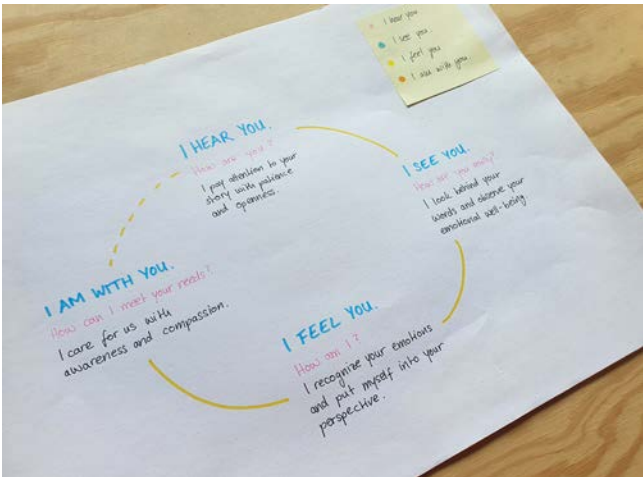 I hear you
I see you.
I feel you
I am with you.
I HEAR YOU.
How are you?
I pay attention to your
story with patience
and openness.
I SEE YOU.
How are you really?
I look behind your
words and observe your
emotional well-being.
I FEEL YOU.
How am I?
I recognize your emotions
and put myself into your
perspective.
I AM WITH YOU.
How can I meet your needs?
I care for us with
awareness and compassion.